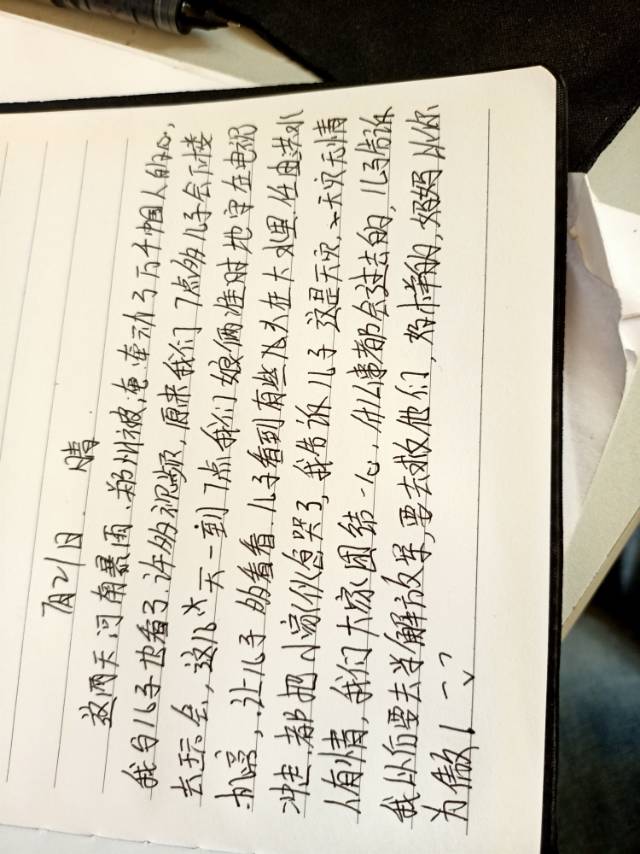 7月21日 晴
这两天河南暴雨、郑州被淹牵动了万千中国人的心,
我与儿子也看了许多视频,原来我们7点多儿子会下楼
去玩会,这几天一到7点我们娘俩准时地守在电视
机旁,让儿子多看看.儿子看到有些人在大水里任由洪水
冲走都把小家伙看哭了,我告诉儿子这是天灾、天灾无情
人有情,我们大家团结一心,什么事都会过去的,儿子告诉
我以后要去当解放军,要去救他们,好样的,妈妈以你
为傲!